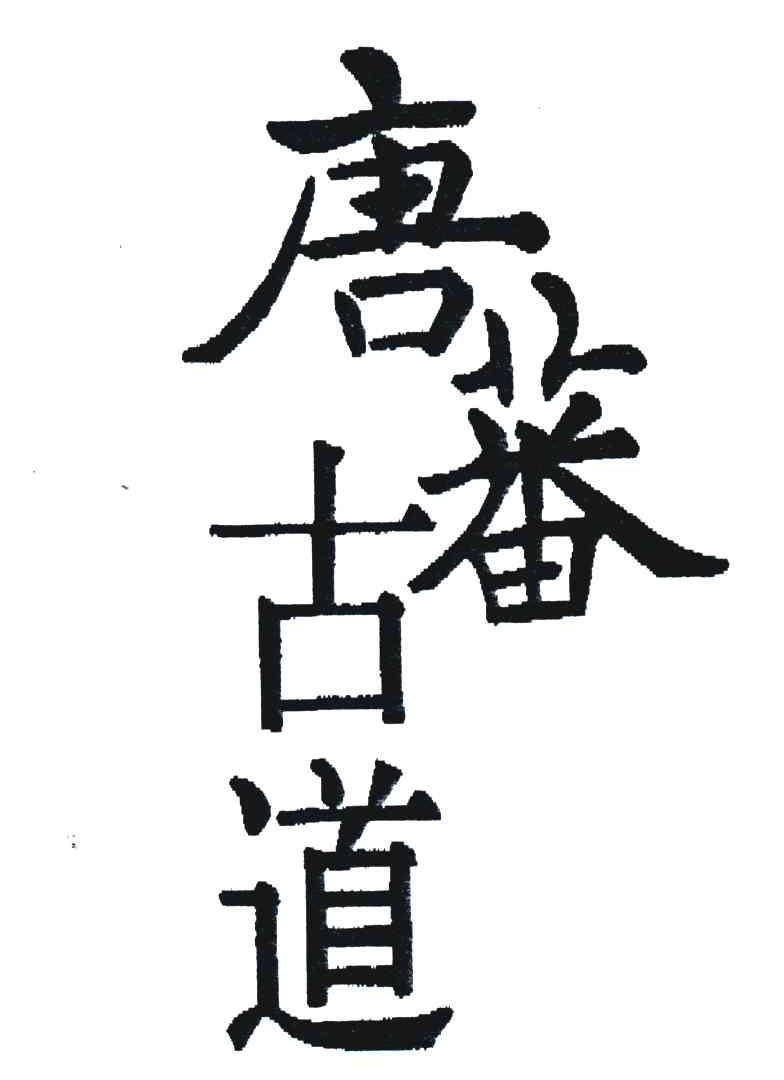 唐蕃古道